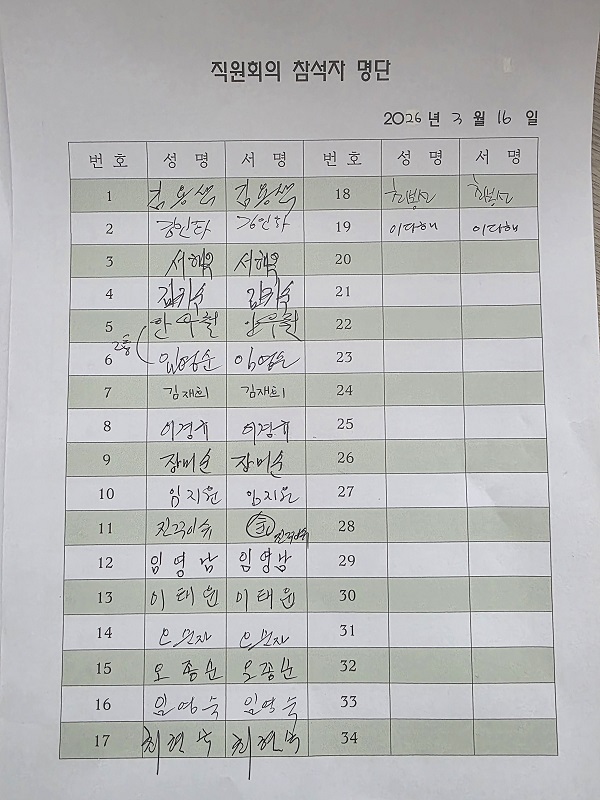 직원회의 참석자 명단
2026년 3월 16일
번호 성명 서명 번호 성명 서명
1 김용색 김용색 18
2 강인자 강인자 19 이다해 이다해
3 서해옥 서해옥 20
4 21
5 22
2층
6 임영순 임영순 23
7 김재희 김재희 24
8 이경휴 이경휴 25
9 장미순 장미순 26
10 임지원 임지원 27
11 28
12 임영남 임영남 29
13 이태원 이태원 30
14 31
15 오종순 오종순 32
16 임영숙 임영숙 33
17 최현숙 최현숙 34